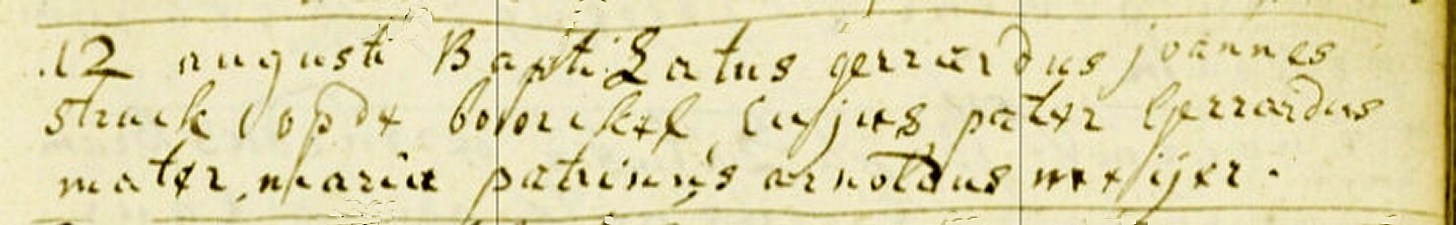 12 augusti Baptizatus gerrardus joannes
struik (opde boonekel Cujus pater Gerrardus
mater, maria patrinus arnoldus meijer.